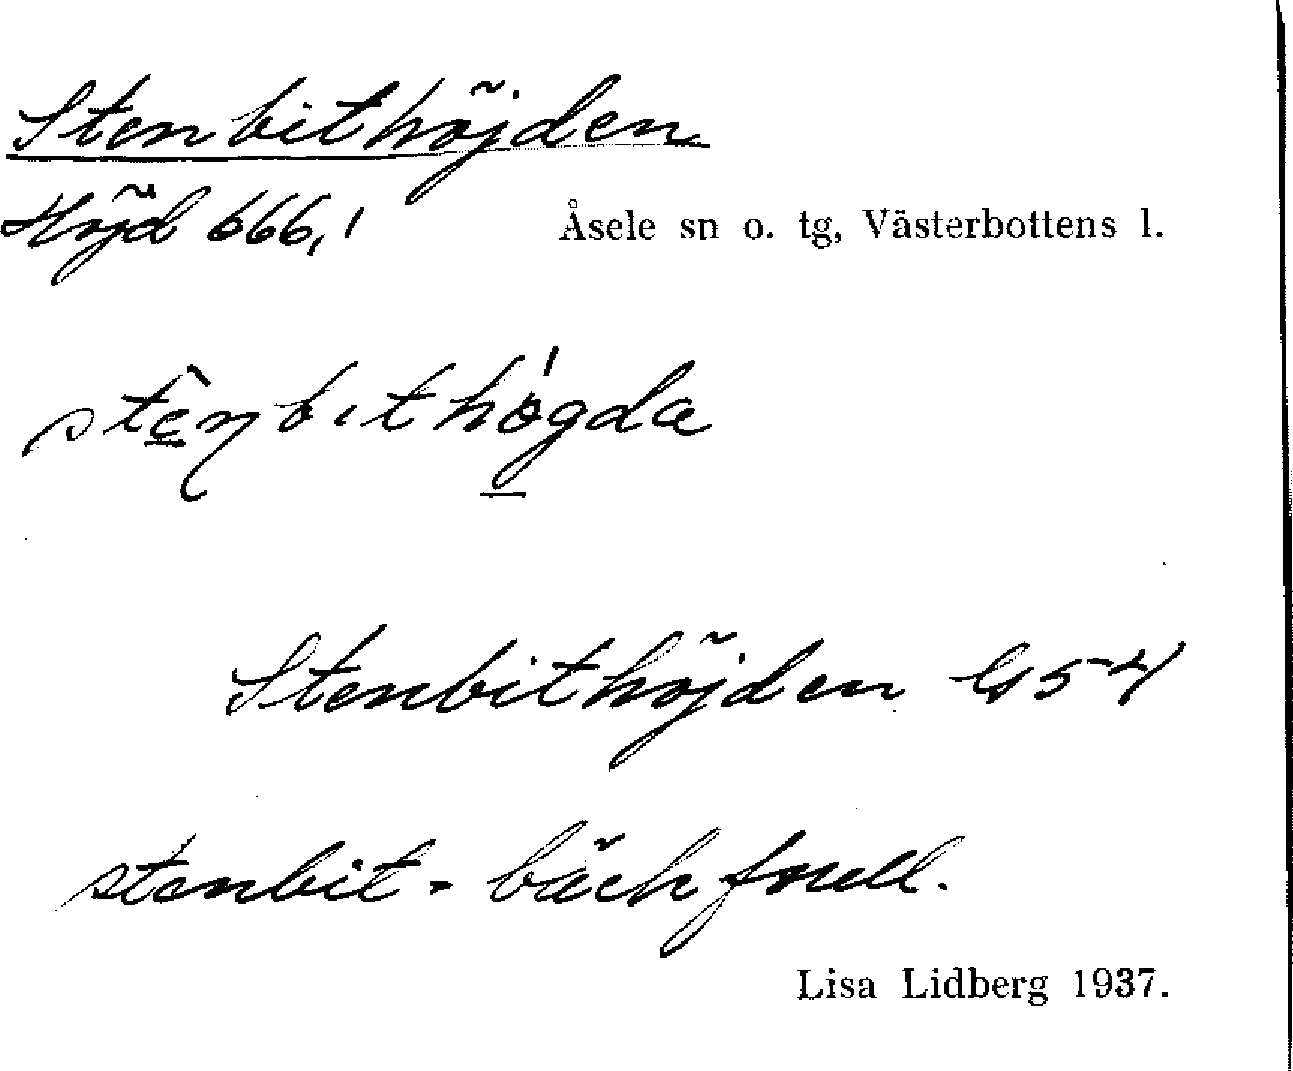 Stenbithöjden
Höjd 666,1 Åsele sn o. tg, Västerbottens l.
Stenbithöjden G54
stenbit = bäck
Lisa Lidberg 1937.